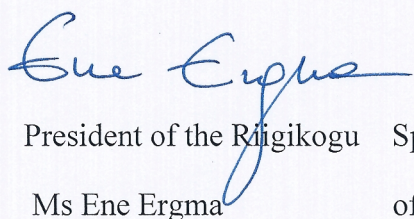 Ene Ergma
President of the Riigikogu Sp
Ms Ene Ergma of